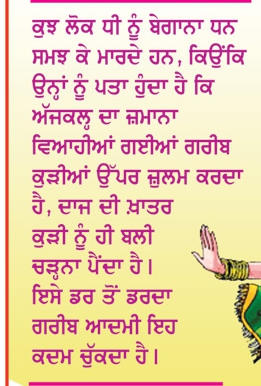 ਕੁਝ ਲੋਕ ਧੀ ਨੂੰ ਬੇਗਾਨਾ ਧਨ
ਸਮਝ ਕੇ ਮਾਰਦੇ ਹਨ, ਕਿਉਂਕਿ
ਉਨ੍ਹਾਂ ਨੂੰ ਪਤਾ ਹੁੰਦਾ ਹੈ ਕਿ
ਅੱਜਕਲ੍ਹ ਦਾ ਜ਼ਮਾਨਾ
ਵਿਆਹੀਆਂ ਗਈਆਂ ਗਰੀਬ
ਕੁੜੀਆਂ ਉੱਪਰ ਜ਼ੁਲਮ ਕਰਦਾ
ਹੈ, ਦਾਜ ਦੀ ਖ਼ਾਤਰ
ਕੁੜੀ ਨੂੰ ਹੀ ਬਲੀ
ਚੜ੍ਹਨਾ ਪੈਂਦਾ ਹੈ।
ਇਸੇ ਡਰ ਤੋਂ ਡਰਦਾ
ਗਰੀਬ ਆਦਮੀ ਇਹ
ਕਦਮ ਚੁੱਕਦਾ ਹੈ।